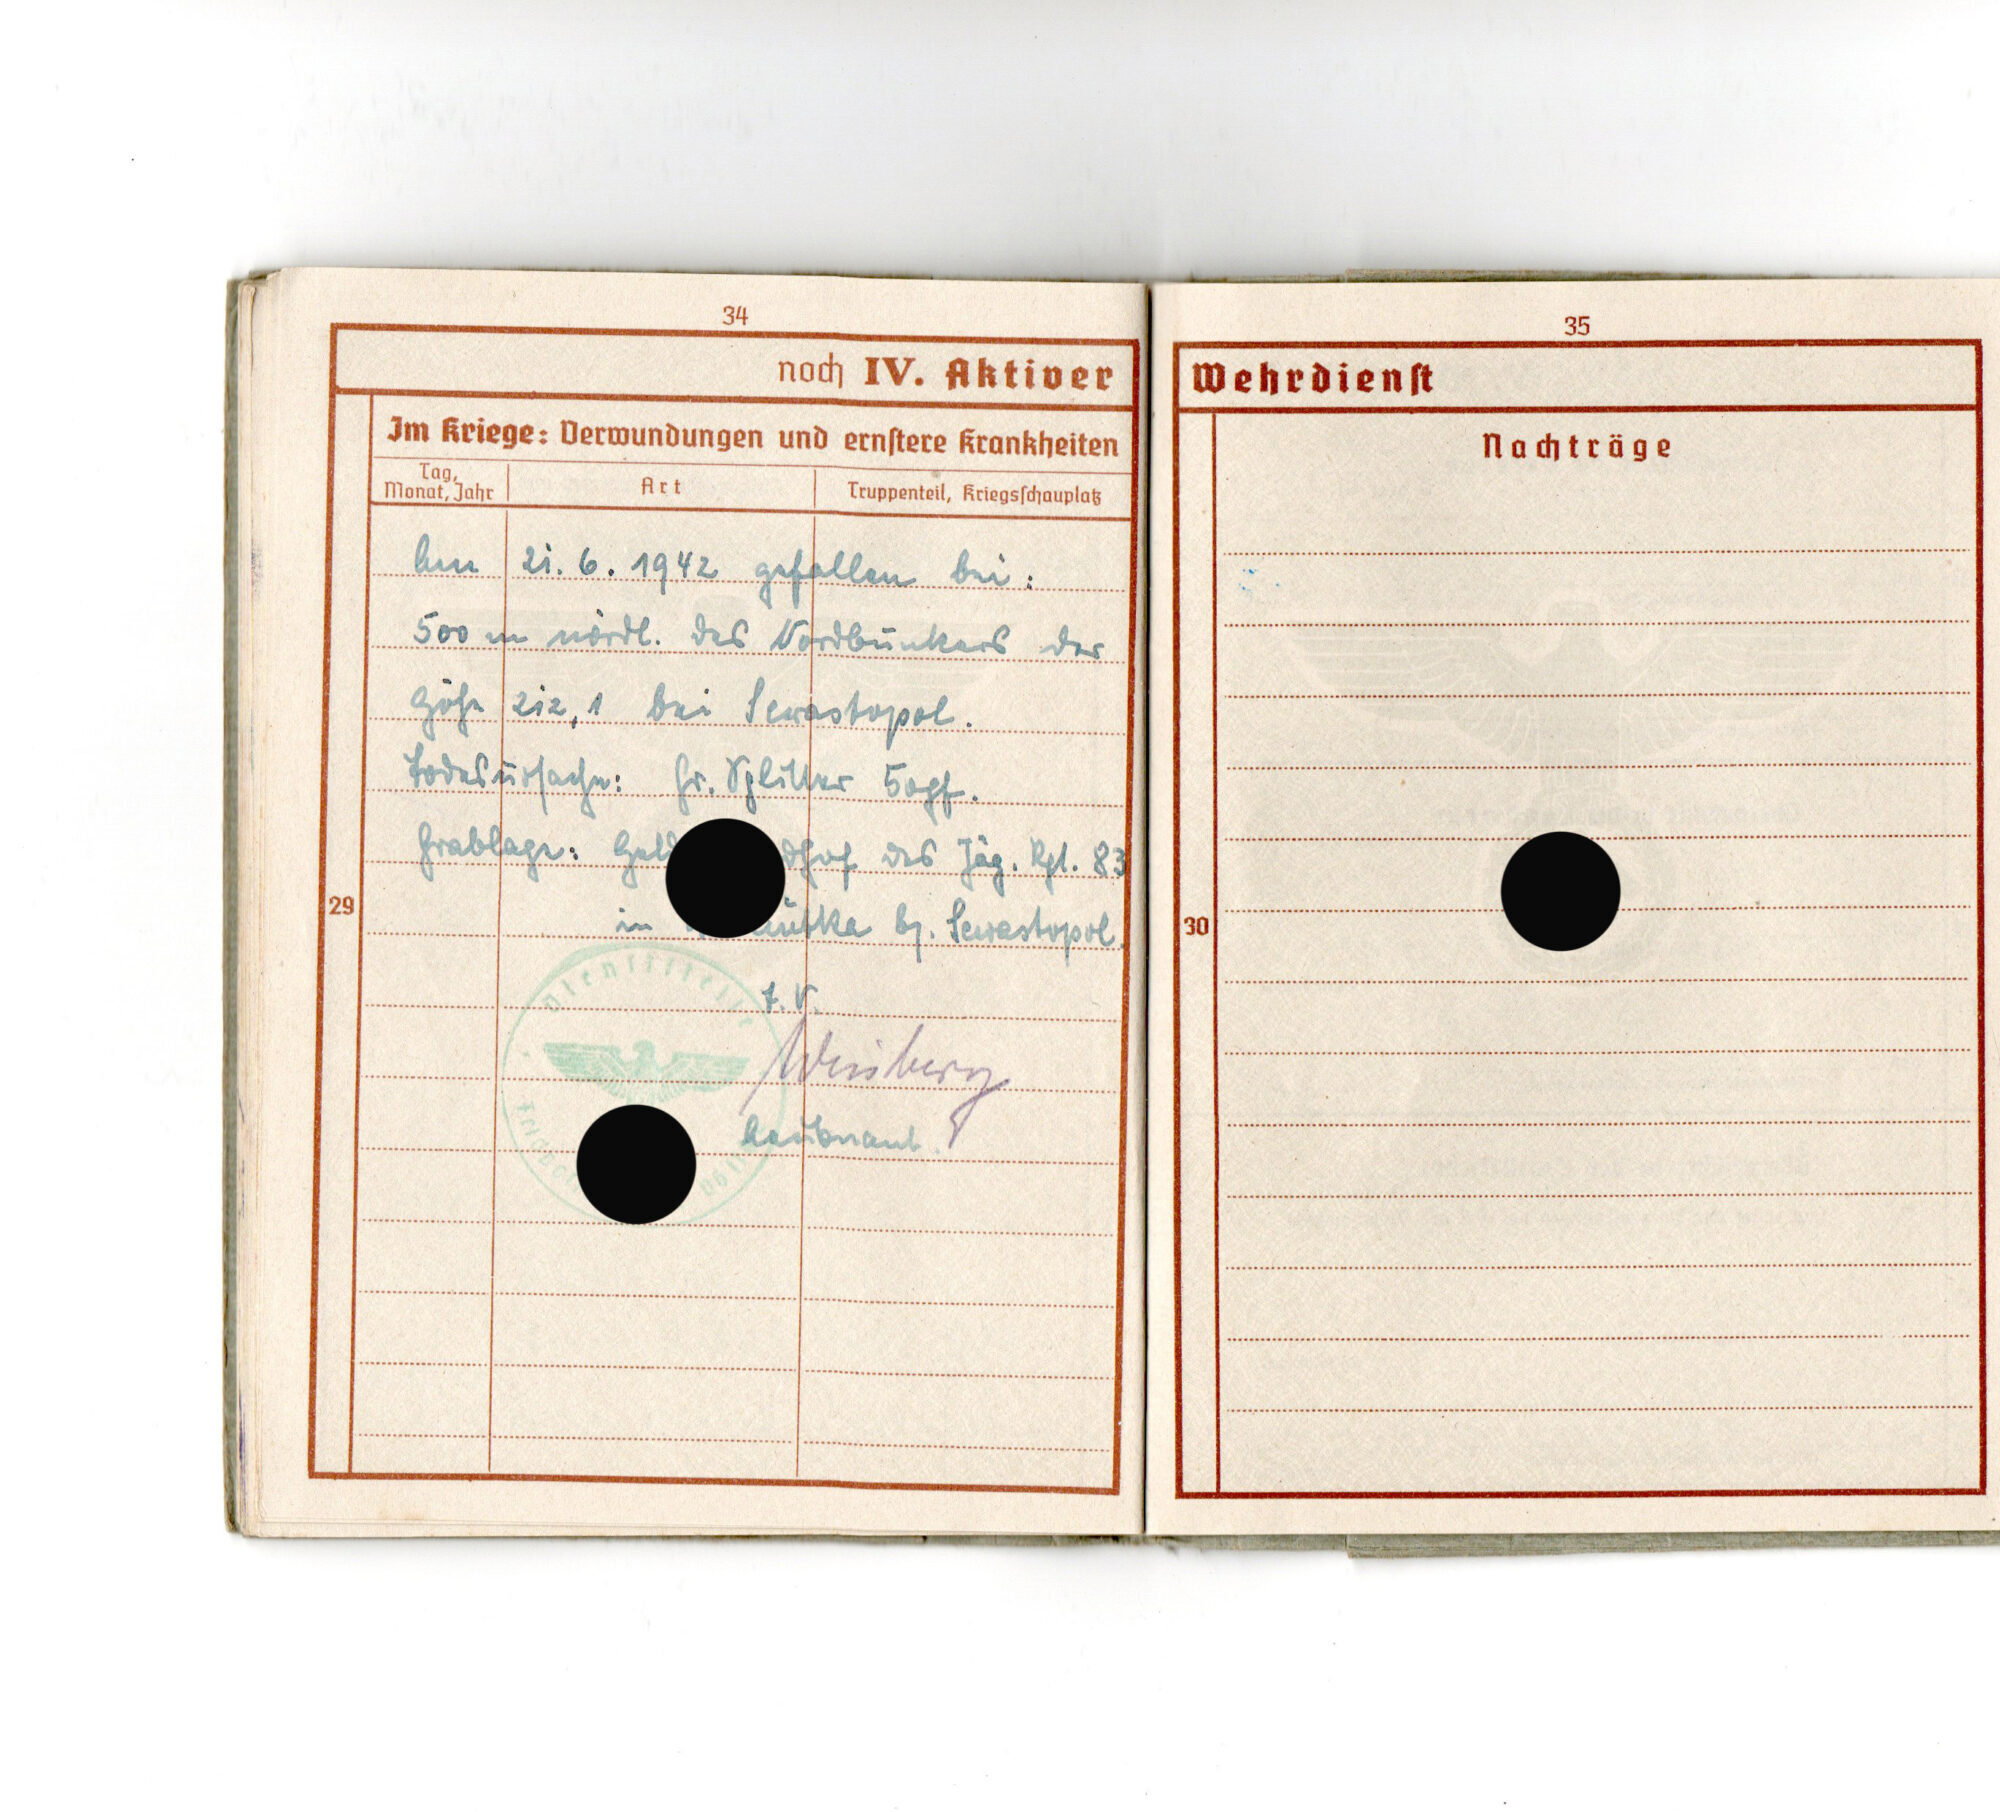 34
noch IV. Aktiver
Im Kriege: Verwundungen und ernstere Krankheiten
Tag, Monat, Jahr
Art
Truppenteil, Kriegsschauplatz
Am 21.6.1942 gefallen bei:
500 m nördl. des Nordbunkers der
Höhe 212,1 bei Sewastopol.
Todesursache: Gr. Splitter
Grablage: des Jäg. Rgt. 83
in b. Sewastopol.
I.V.
Leutnant.
29
Dienststelle
35
Wehrdienst
Nachträge
30